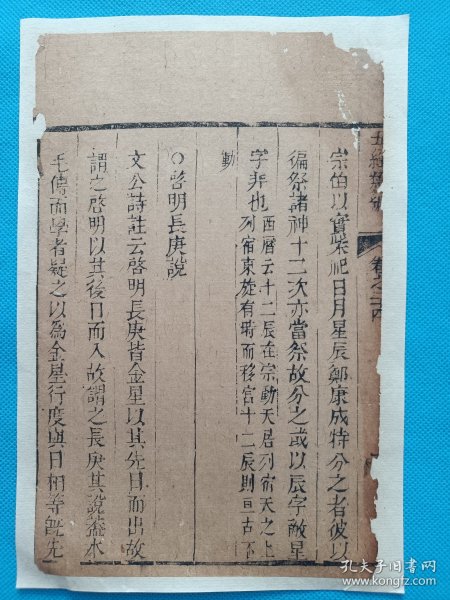 宗伯以實柴祀日月星辰鄭康成特分之者彼以
徧祭諸神十二次亦當祭故分之或以辰字敵星
字非也西曆云十二辰在宗動天居列宿天之上
列宿東旋有時而移宮十二辰則亘古不
動
○啓明長庚說
文公詩註云啓明長庚皆金星以其先日而出故
謂之啓明以其後日而入故謂之長庚其說葢本
毛傳而學者疑之以為金星行度與日相等旣先
卷之六
孔夫子旧书网
www.kongfz.com